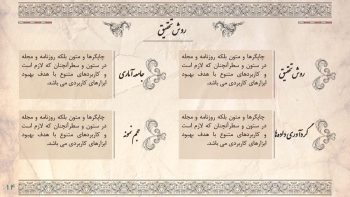 روش تحقیق
روش تحقیق
چاپگرها و متون بلکه روزنامه و مجله
در ستون و سطرآنچنان که لازم است
و کاربردهای متنوع با هدف بهبود
ابزارهای کاربردی می باشد.
جامعه آماری
چاپگرها و متون بلکه روزنامه و مجله
در ستون و سطرآنچنان که لازم است
و کاربردهای متنوع با هدف بهبود
ابزارهای کاربردی می باشد.
گردآوری داده‌ها
چاپگرها و متون بلکه روزنامه و مجله
در ستون و سطرآنچنان که لازم است
و کاربردهای متنوع با هدف بهبود
ابزارهای کاربردی می باشد.
حجم نمونه
چاپگرها و متون بلکه روزنامه و مجله
در ستون و سطرآنچنان که لازم است
و کاربردهای متنوع با هدف بهبود
ابزارهای کاربردی می باشد.
۱۴